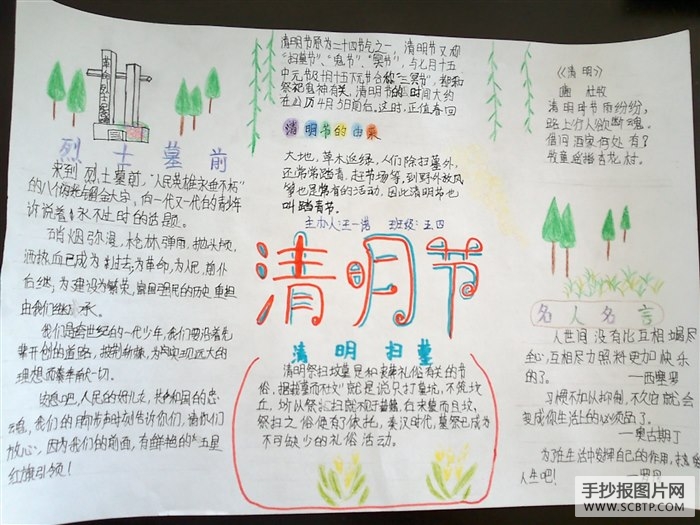 革命烈士纪念碑
烈士墓前
来到烈士墓前，"人民英雄永垂不朽"
的八个闪光镏金大字，向一代又一代的青少年
诉说着永不过时的话题。
硝烟弥漫，枪林弹雨，抛头颅，
洒热血已成为过去；为革命，为人民，前仆
后继，为建设为繁荣，富国强民的历史重担
由我们继承。
我们是跨世纪的一代少年，我们要沿着先
辈开创的道路，披荆斩棘，为实现远大的
理想而奉献一切。
安息吧，人民的好儿女，共和国的忠
魂，我们的同步声时刻告诉你们，请你们
放心，因为我们的前面，有鲜艳的"五星
红旗引领！
清明节原为二十四节气之一，清明节又称
"扫墓节"、"鬼节"、"冥节"，与七月十五
中元节及十月十五下元节合称"三冥节"，都和
祭祀鬼神有关，清明节的时间大约
在公历4月5日前后，这时，正值春回
清明节的由来
大地，草木返绿，人们除扫墓外，
还常常踏青，赶节场等，到野外放风
筝也是常有的活动，因此清明节也
叫踏青节。
主办人：王一浩 班级：五四
清明节
清明扫墓
清明祭扫坟墓是和丧葬礼俗有关的节
俗，据载"墓而不坟"就是说只打墓坑，不筑坟
丘，所以祭扫就不见于载籍，后来墓而且坟，
祭扫之俗便有了依托，秦汉时代，墓祭已成为
不可缺少的礼俗活动。
《清明》
唐 杜牧
清明时节雨纷纷，
路上行人欲断魂。
借问酒家何处有？
牧童遥指杏花村。
名人名言
人世间没有比互相竭尽
全心，互相尽力照料更加快乐
的了。 —西塞罗
习惯不加以抑制，不久它就会
变成你生活上的必须品了。
—奥古斯丁
为在生活中发挥自己的作用，
人生吧！
手抄报图片网
WWW.SCBTP.COM